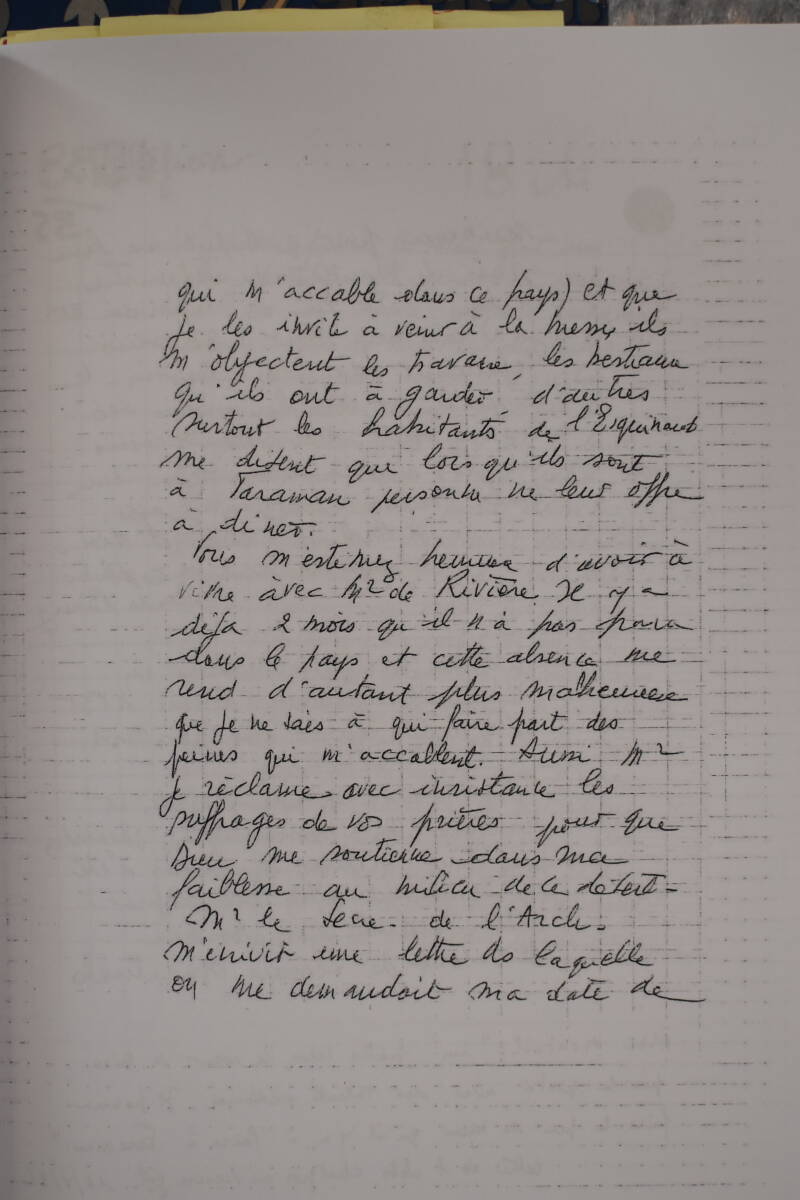 qui m'accable dans ce pays) et que
je les invite à venir à la messe, ils
m'objectent les travaux, les bestiaux
qu'ils ont à garder, d'autres
surtout les habitants de l'Esquinaut
me disent que lorsqu'ils sont
à Taraman personne ne leur offre
à diner.
Vous m'estimez heureux d'avoir à
vivre avec Mr de Rivière. Il y a
déja 2 mois qu'il n'a pas paru
dans le pays et cette absence me
rend d'autant plus malheureux
que je ne sais à qui faire part des
peines qui m'accablent. Aussi Mr
je réclame avec insistance les
suffrages de vos prières pour que
Dieu me soutienne dans ma
faiblesse au milieu de ce désert-
Mr le Sécre. de l'Arch.
m'écrivit une lettre ds laquelle
on me demandoit ma date de